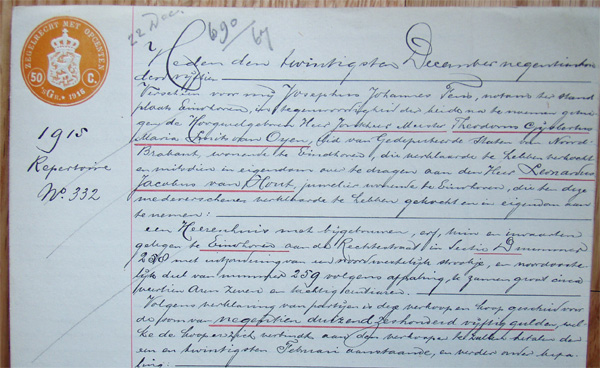 ZEGELRECHT MET OPCENTEN
50 C.
1915
22 Dec
690/67
Heden den twintigsten December negentienhon-
derd vijftien
Verscheen voor mij Josephus Johannes Fens, notaris ter stand-
plaats Eindhoven, in tegenwoordigheid der beide na te noemen getui-
gen, de Hoogwelgeboren Heer Jonkheer Meester Theodorus
Maria van Oyen, lid van Gedeputeerde Staten van Noord-
Brabant, wonende te Eindhoven, die verklaarde te hebben verkocht
en mitsdien in eigendom over te dragen aan den Heer Leonardus
Jacobus van Hout, juwelier wonende te Eindhoven, die ten deze
mede verscheen en verklaarde te hebben gekocht en in eigendom aan
te nemen:
een Heerenhuis met bijgebouwen, erf, tuin en
gelegen te Eindhoven aan de Rechtestraat in Sectie D nummers
258 met uitzondering van een noordwestelijk strookje, en noordooste-
lijk deel van nummer 259 volgens afpaling, te zamen groot circa
veertien Aren zeven en tachtig centiaren.
Volgens verklaring van partijen is deze verkoop en koop geschied voor
de som van negentien duizend zes honderd vijftig gulden, wel-
ke de kooper zich verbindt aan den verkooper te zullen betalen den
een en twintigsten Februari aanstaande, en verder onder bepa-
ling:
1915
Repertoire
No. 332